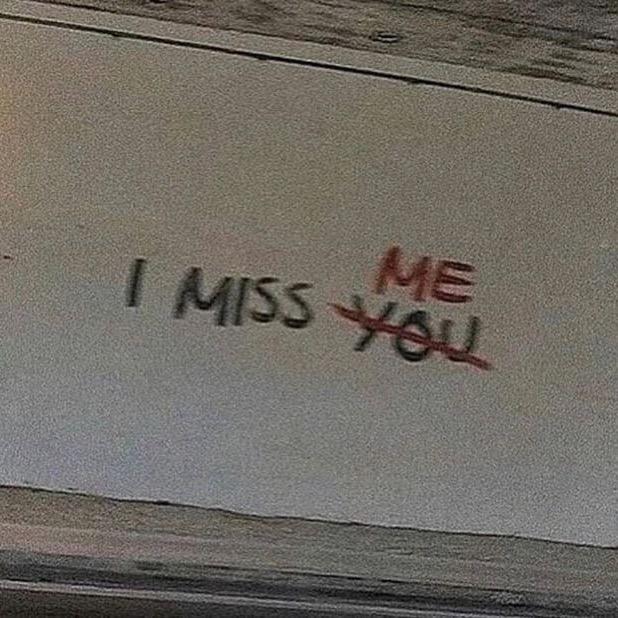 ME
I MISS YOU